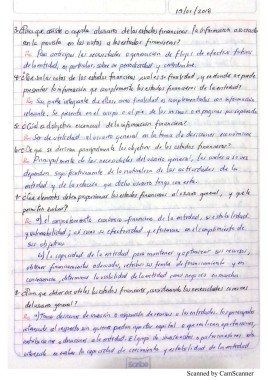 19/01/2018
3. ¿Para que asiste o ayuda al usuario de los estados financieros la información asociada
con la prevista en las notas a los estados financieros?
R= Para anticipar las necesidades o generación de flujos de efectivo futuros
de la entidad, en particular sobre su periodicidad y certidumbre.
4. ¿Que son las notas de los estados financieros, cual es su finalidad, y en donde se puede
presentar la información que complementa los estados financieros de la entidad?
R= Son parte integrante de ellos, como finalidad es complementarlos con información
relevante. Se presenta en el cuerpo o al pie de los mismos o en páginas por separado.
5. ¿Cuál es el objetivo esencial de la información financiera?
R= Ser de utilidad al usuario general en la toma de decisiones económicas
6. ¿De que se derivan principalmente los objetivos de los estados financieros?
R= Principalmente de las necesidades del usuario general, las cuales a su vez
dependen significativamente de la naturaleza de las actividades de la
entidad y de la relación que dicho usuario tenga con esta.
7. ¿Que elementos debe proporcionar los estados financieros al usuario general, y que le
permiten evaluar?
R= a) el comportamiento económico-financiero de la entidad, su estabilidad,
vulnerabilidad; así como su efectividad y eficiencia en el cumplimiento de
sus objetivos.
b) la capacidad de la entidad para mantener y optimizar sus recursos,
obtener financiamientos adecuados, retribuir sus fuentes de financiamiento y, en
consecuencia, determinar la viabilidad de la entidad como negocio en marcha.
8. ¿Para que deben ser útiles los estados financieros, considerando las necesidades comunes
del usuario general?
R= a) Tomar decisiones de inversión o asignación de recursos a las entidades. Los principales
interesados al respecto son quienes puedan aportar capital o que realizan aportaciones,
contribuciones o donaciones a la entidad. El grupo de inversionistas o patrocinadores está
interesado en evaluar la capacidad de crecimiento y estabilidad de la entidad
Scribe
Scanned by CamScanner